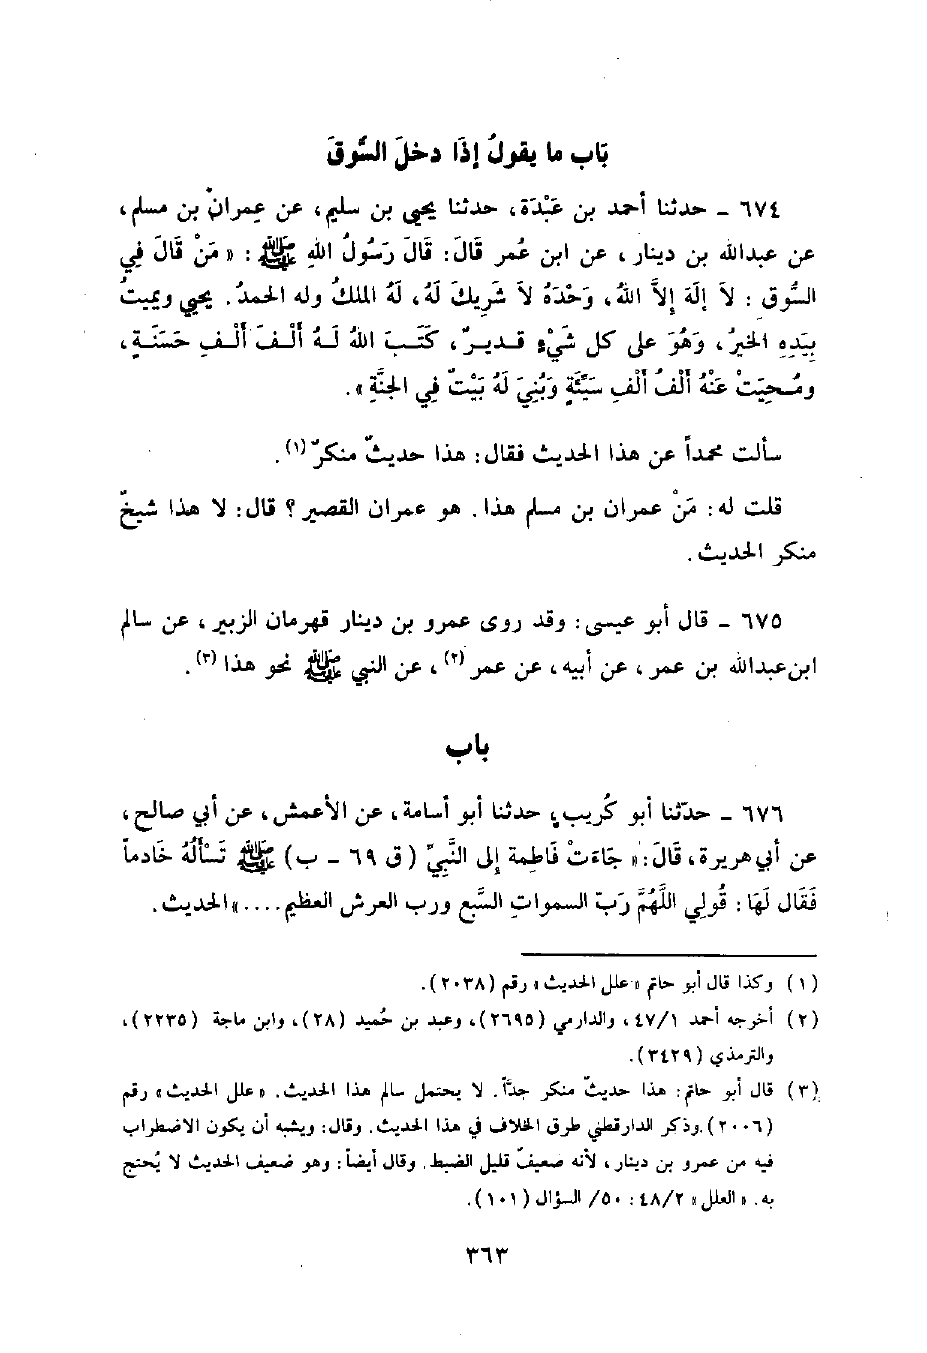 بَاب ما يقولُ إذَا دخلَ السُّوقَ
٦٧٤ ـ حدثنا أحمد بن عَبْدَة، حدثنا يحيى بن سليم، عن عِمرانَ بن مسلم،
عن عبدالله بن دينار، عن ابن عُمر قَالَ: قَالَ رَسُولُ اللهِ ﷺ: «مَنْ قَالَ فِي
السُّوق: لاَ إلَهَ إِلاَّ اللهُ، وَحْدَهُ لاَ شَرِيكَ لَهُ، لَهُ الملكُ وله الحمدُ. يحيي ويميتُ
بِيَدِهِ الخيرُ، وَهُوَ على كل شَيْءٍ قديرٌ، كَتَبَ اللهُ لَهُ أَلْفَ أَلْفِ حَسَنَةٍ،
ومُحِيَتْ عَنْهُ أَلْفُ أَلْفِ سَيِّئَةٍ وَبُنِيَ لَهُ بَيْتٌ فِي الجَنَّةِ».
سألت محمداً عن هذا الحديث فقال: هذا حديثٌ منكرٌ (١).
قلت له: مَنْ عمران بن مسلم هذا. هو عمران القصير؟ قال: لا هذا شيخٌ
منكر الحديث.
٦٧٥ ـ قال أبو عيسى: وقد روى عمرو بن دينار قهرمان الزبير، عن سالم
ابن عبدالله بن عمر، عن أبيه، عن عمر (٢)، عن النبي ﷺ نحو هذا (٣).
باب
٦٧٦ ـ حدّثنا أبو كُريب، حدثنا أبو أسامة، عن الأعمش، عن أبي صالح،
عن أبي هريرة، قَالَ: «جَاءَتْ فَاطِمة إلى النَّبِيِّ (ق ٦٩ ـ ب) ﷺ تَسْأَلُهُ خَادماً
فَقَال لَهَا: قُولِي اللَّهُمَّ رَبّ السمواتِ السَّبع ورب العرش العظيم....» الحديث.
(١) وكذا قال أبو حاتم «علل الحديث» رقم (٢٠٣٨).
(٢) أخرجه أحمد ٤٧/١، والدارمي (٢٦٩٥)، وعبد بن حُميد (٢٨)، وابن ماجة (٢٢٣٥)،
والترمذي (٣٤٢٩).
(٣) قال أبو حاتم: هذا حديثٌ منكر جدّاً. لا يحتمل سالم هذا الحديث. «علل الحديث» رقم
(٢٠٠٦). وذكر الدارقطني طرق الخلاف في هذا الحديث. وقال: ويشبه أن يكون الاضطراب
فيه من عمرو بن دينار، لأنه ضعيفٌ قليل الضبط. وقال أيضاً: وهو ضعيف الحديث لا يُحتج
به. «العلل» ٤٨/٢: ٥٠/ السؤال (١٠١).
٣٦٣